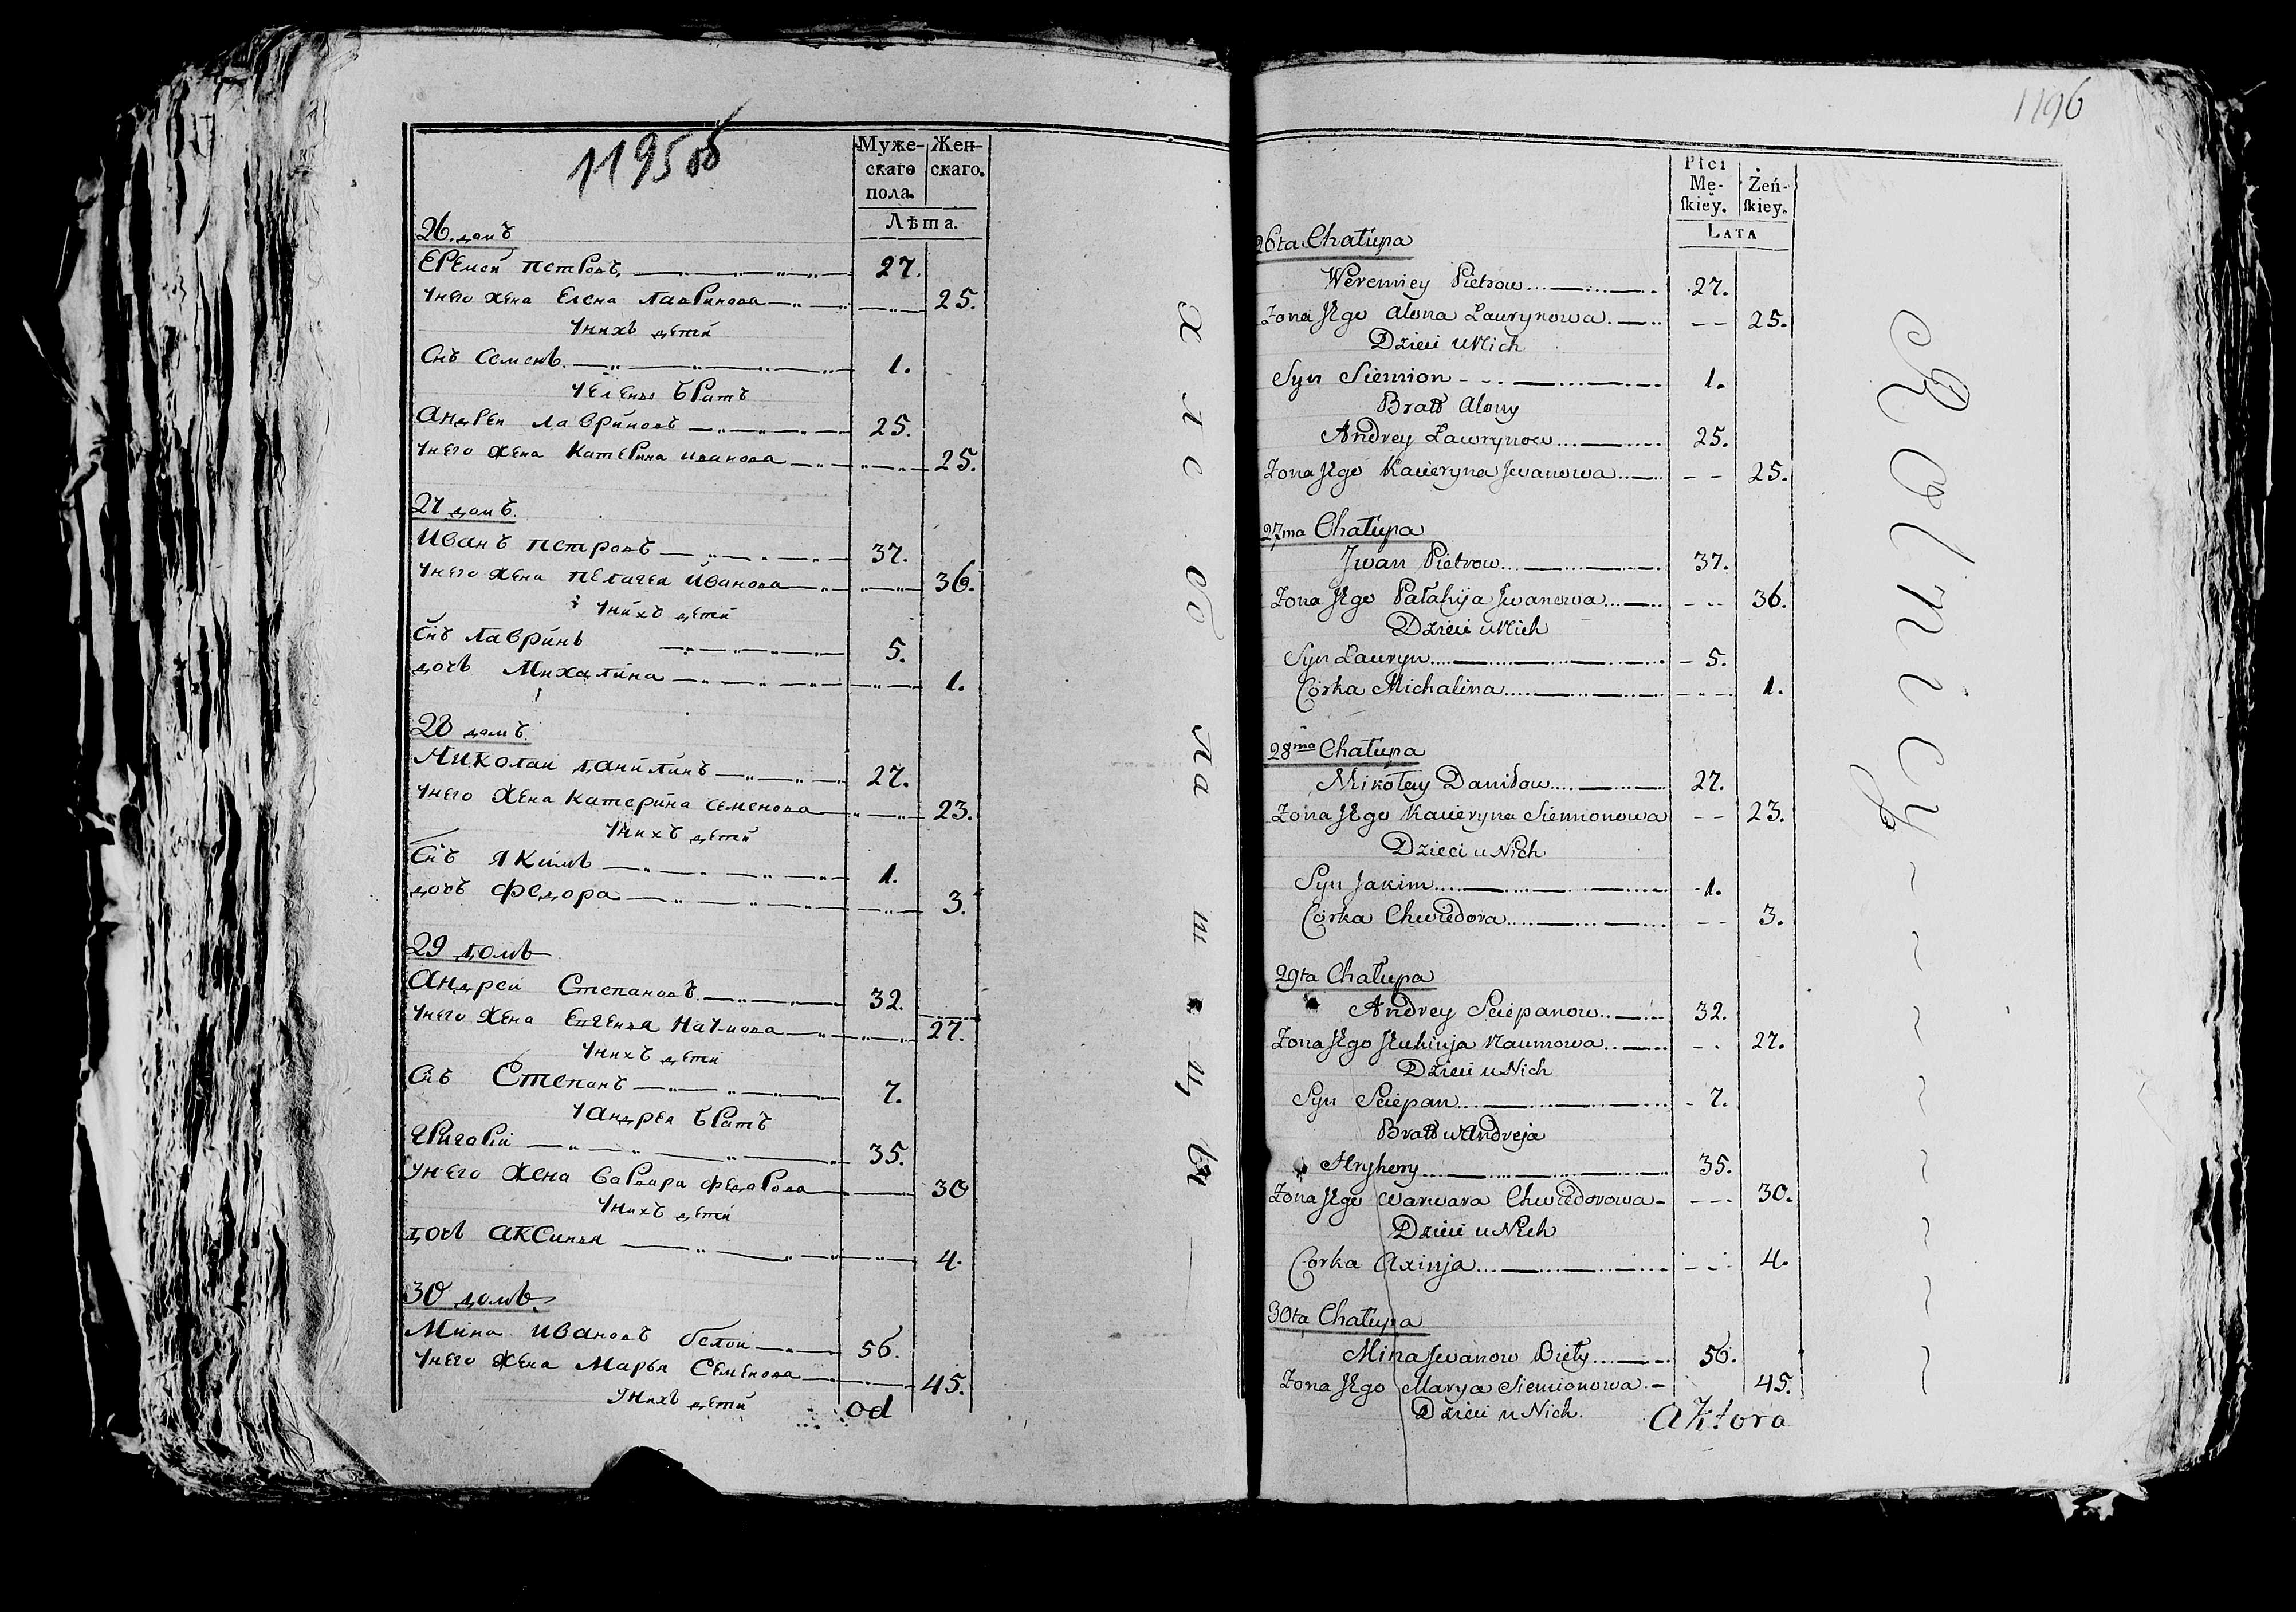 1195об
Муже-
скаго
пола.
Жен-
скаго.
Лѣта.
26. домъ
Еремеи петровъ 27.
унего жена Елена лавринова 25.
унихъ детей
Снъ Семенъ. 1.
уелены братъ
Андреи лавриновъ 25.
унего жена Катерина иванова 25.
27 домъ.
Иванъ петровъ 37.
унего жена пелагея иванова 36.
унихъ детей
Снъ лавринъ 5.
дочь Михалина 1.
28 домъ.
Николаи данилинъ 27.
унего жена катерина семенова 23.
унихъ детей
Снъ якимъ 1.
дочь федора 3.
29 домъ
Андреи Степановъ 32.
унего жена Евгенья наумова 27.
унихъ детей
Снъ Степанъ 7.
уандрея братъ
григореи 35.
унего жена варвара федарова 30
унихъ детей
дочь аксинья 4.
30 домъ.
Мина ивановъ белои 56.
унего жена марья Семенова 45.
унихъ детей
od
хлебопашцы
1196
Płci
Mę-
skiey.
Żeń-
skiey.
LATA
26ta Chałupa
Weremiey Pietrow 27.
Zona Jego Alona Ławrynowa 25.
Dzieci u Nich
Syn Siemion 1.
Brat Alony
Andrey Ławrynow 25.
Zona Jego Kacieryna Jwanowa 25.
27ma Chałupa
Jwan Pietrow 37.
Zona Jego Pałahija Jwanowa 36.
Dzieci u Nich
Syn Ławryn 5.
Corka Michalina 1.
28ma Chałupa
Mikołay Daniłow 27.
Zona Jego Kacieryna Siemionowa 23.
Dzieci u Nich
Syn Jakim 1.
Corka Chwiedora 3.
29ta Chałupa
Andrey Sciepanow 32.
Zona Jego Jeuhinja Naumowa 27.
Dzieci u Nich
Syn Sciepan 7.
Brat u Andreja
Hryhory 35.
Zona Jego Warwara Chwiedorowa 30.
Dzieci u Nich
Corka Axinja 4.
30ta Chałupa
Mina Jwanow Biely 56.
Zona Jego Marya Siemionowa 45.
Dzieci u Nich.
aktora
Rolnicy